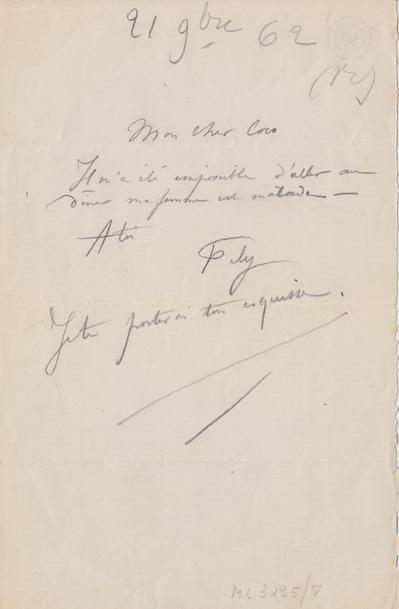 21 9bre 62
Mon cher Coco
Il m'a été impossible d'aller au
diner ma femme est malade —
A toi
Fély
Je te porterai ton esquisse.
ML 3195/8